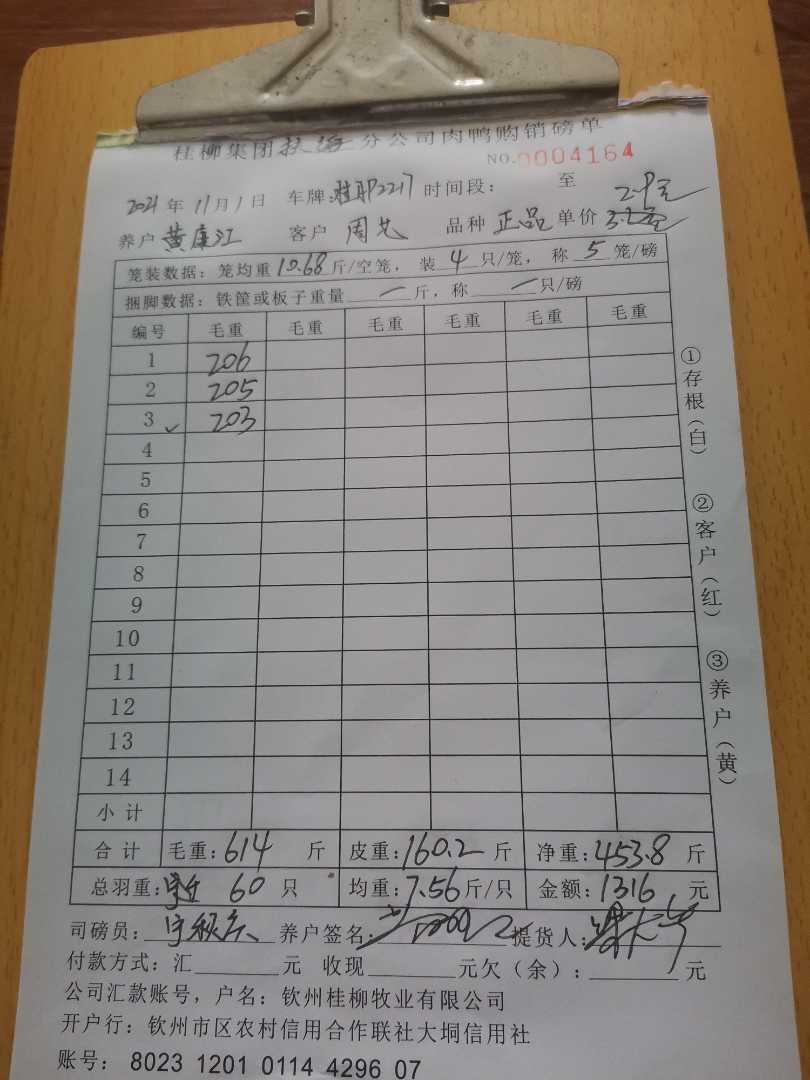 桂柳集团扶绥分公司肉鸭购销磅单
NO.0004164
2021年11月1日 车牌:桂NP2217 时间段: 至
2.9元
养户 黄康江 客户 周 品种 正品 单价
笼装数据:笼均重10.68斤/空笼,装4只/笼,称5笼/磅
捆脚数据:铁筐或板子重量一斤,称一只/磅
编号 毛重 毛重 毛重 毛重 毛重 毛重
1 206
2 205
3 203
4
5
6
7
8
9
10
11
12
13
14
小计
合计 毛重:614 斤 皮重:160.2 斤 净重:453.8 斤
总羽重: 60 只 均重:7.56斤/只 金额:1316元
司磅员: 养户签名: 提货人:
付款方式:汇 元 收现 元欠(余): 元
公司汇款账号,户名:钦州桂柳牧业有限公司
开户行:钦州市区农村信用合作联社大垌信用社
账号: 8023 1201 0114 4296 07
①存根(白)
②客户(红)
③养户(黄)